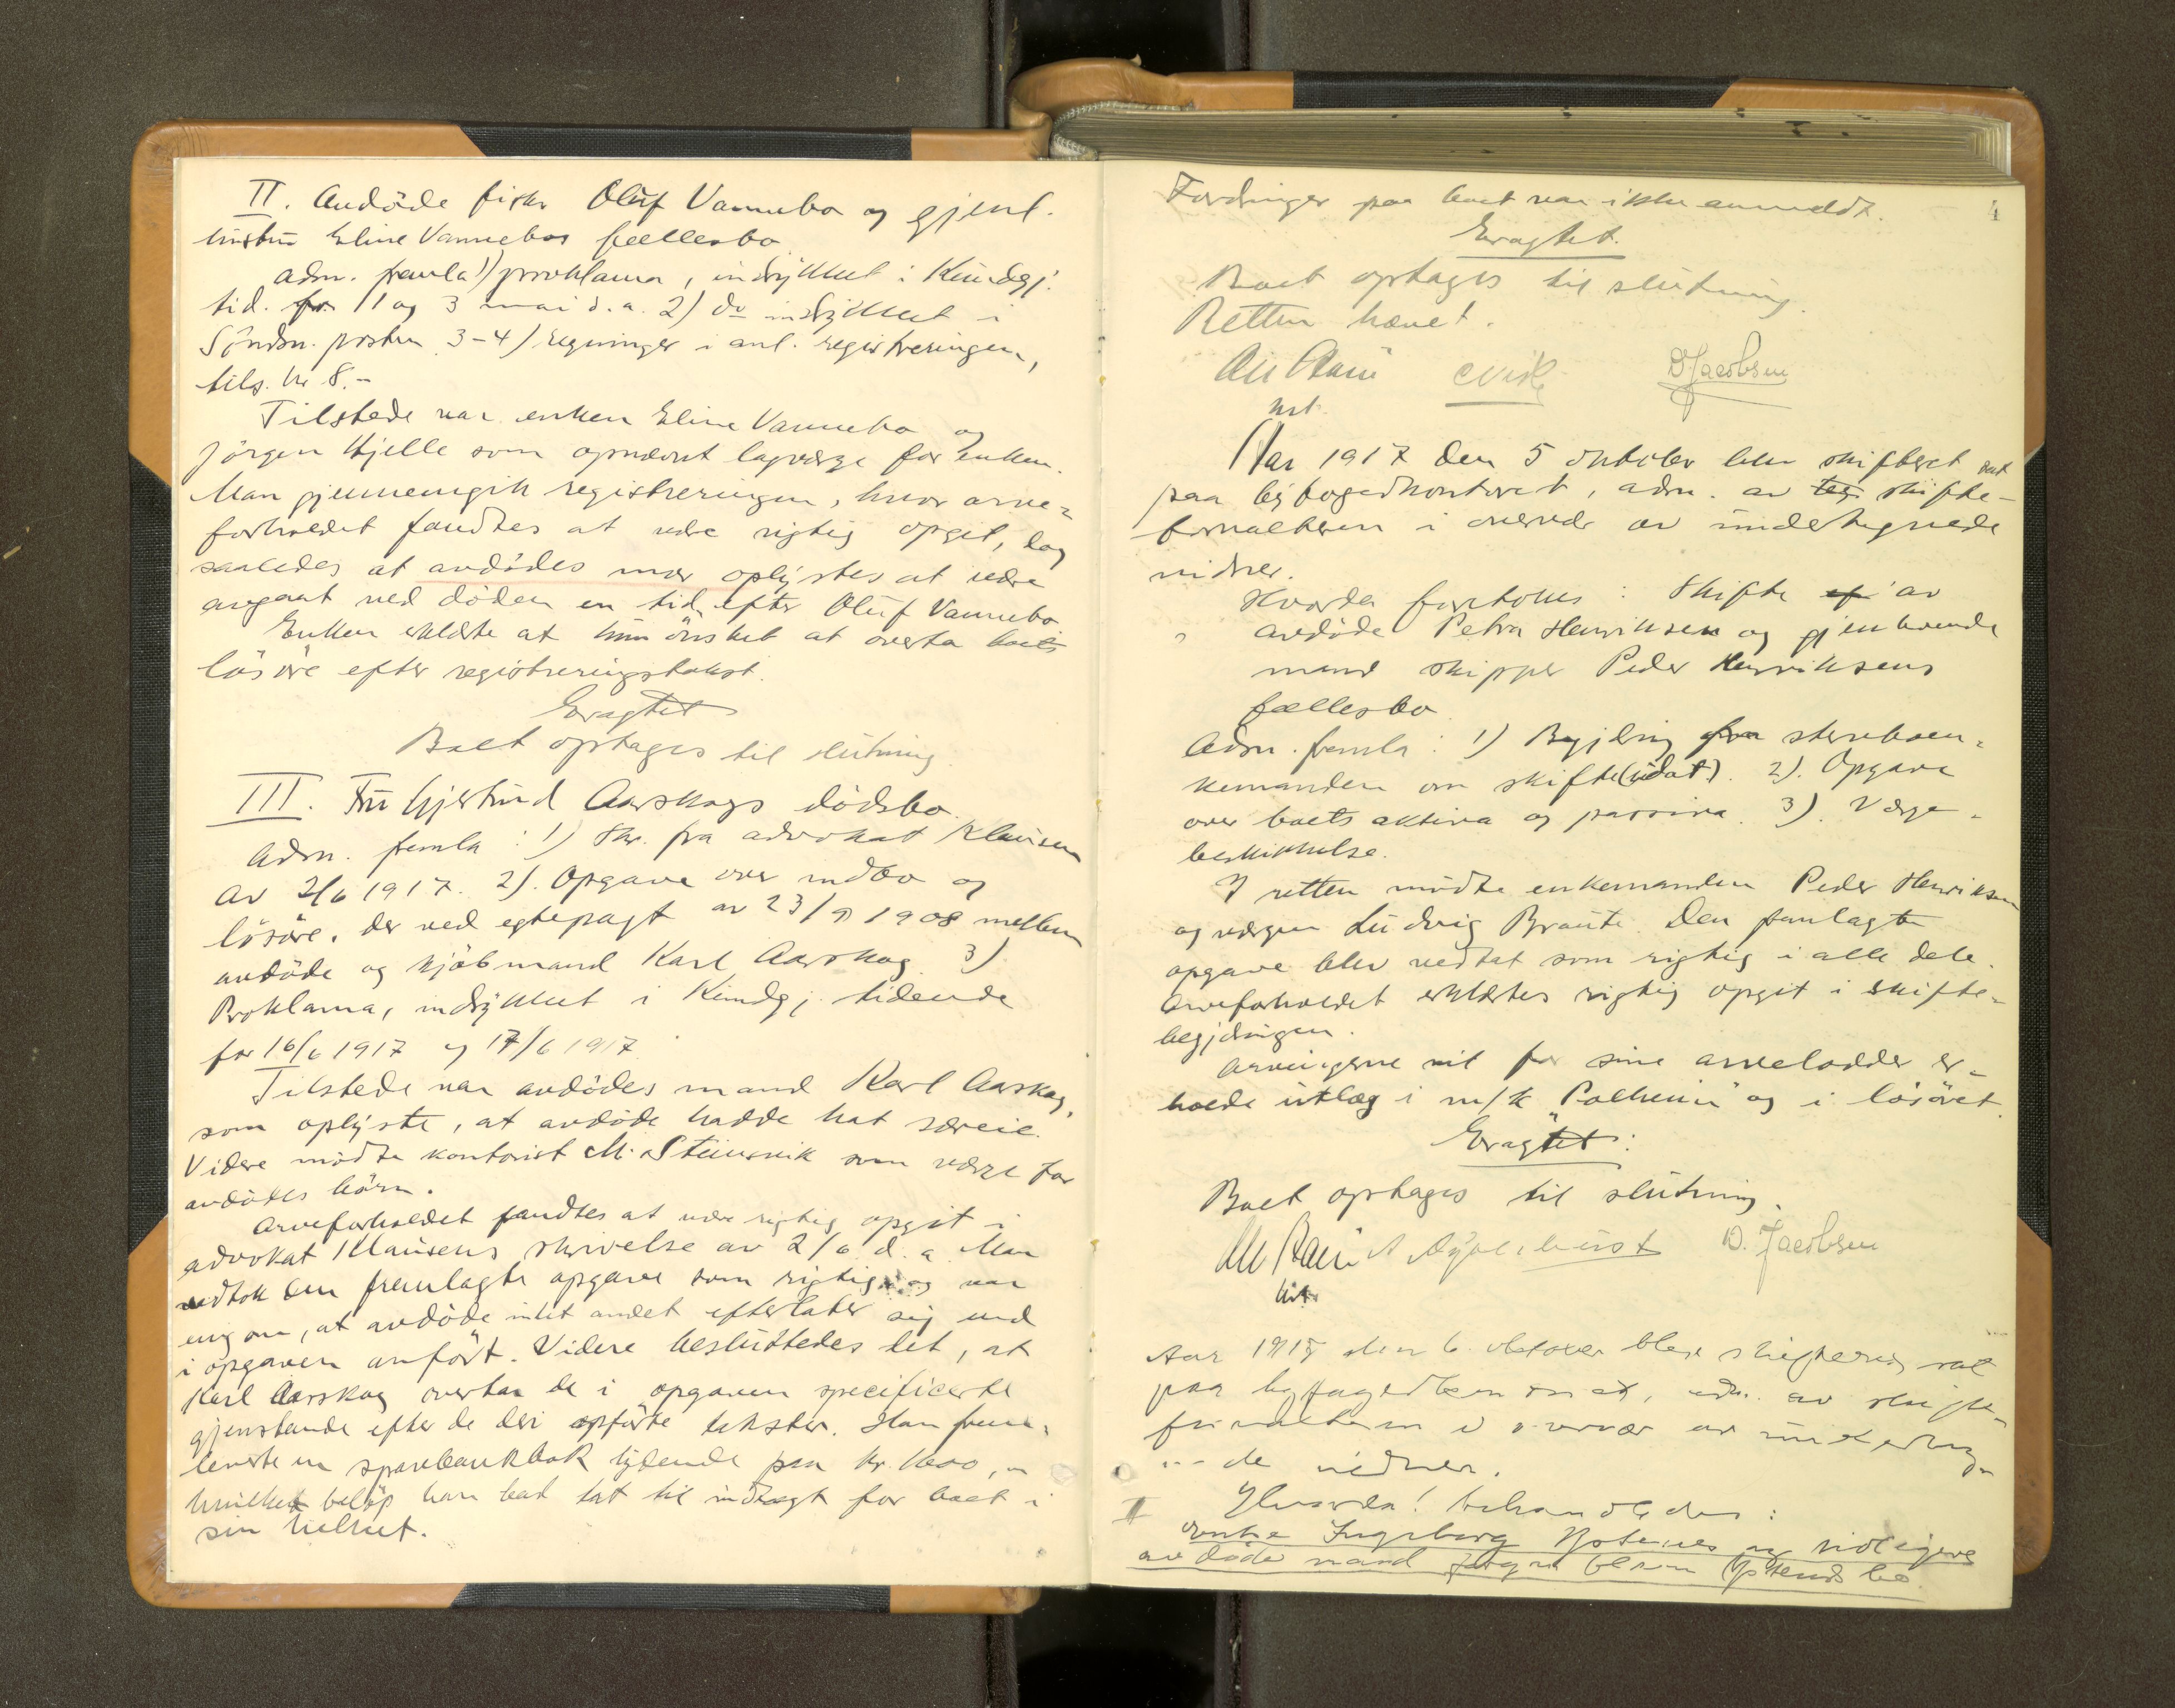 II. Avdöde fisker Oluf Vannebo og gjenl.
hustru Eline Vannebos fællesbo
Adm. fremla 1) proklama, indrykket i Kundgj.
tid. for 1 og 3 mai d. a. 2) do indrykket i
Söndm. posten 3-4) regninger i anl. registreringen,
tils. kr 8.-
Tilstede var enken Eline Vannebo og
Jörgen Hjelle som opnævnt lagværge for enken.
Man gjennemgik registreringen, hvor arve-
forholdet fandtes at være rigtig opgit, dog
saaledes at avdödes mor oplystes at være
avgaat ved döden en tid efter Oluf Vannebo
Enken erklærte at hun önsket at overta boets
lösöre efter registreringstakst.
Eragtet
Boet optages til slutning.
III. Fru Gjertrud Aarskogs dödsbo.
Adm. fremla: 1) Skr. fra advokat Klausen
av 2/6 1917. 2). Opgave over indbo og
lösöre, der ved egtepagt av 23/9 1908 mellem
avdöde og kjöbmand Karl Aarskog 3)
Proklama, indrykket i Kundgj. tidende
for 16/6 1917 og 17/6 1917.
Tilstede var avdödes mand Karl Aarskog,
som oplyste, at avdöde hadde hat særeie.
Videre mödte kontorist M. Stünsvik som værge for
avdödes börn.
Arveforholdet fandtes at være rigtig opgit i
advokat Klausens skrivelse av 2/6 d. a. Man
vedtok den fremlagte opgave som rigtig og var
enig om, at avdöde intet andet efterlater sig end
i opgaven anfört. Videre besluttedes det, at
Karl Aarskog overtar de i opgaven specificerte
gjenstande efter de deri opförte takster. Han frem-
leverte en sparebankbok lydende paa kr.
hvilket belöp han bad tat til indtægt for boet i
sin helhet.
4
Fordringer paa boet var ikke anmeldt.
Eragtet.
Boet optages til slutning.
Retten hævet.
D. Jacobsen
Aar 1917 den 5 oktober blev skifteret sat
paa byfogedkontoret, adm. av skifte-
forvalteren i overvær av undertegnede
vidner.
Hvorda foretokes: Skifte ef av
avdöde Petra Henriksen og gjenlevende
mand skipper Peder Henriksens
fællesbo
Adm. fremla: 1) Begjæring fra sterkboen-
kemanden om skifte (udat). 2). Opgave
over boets aktiva og passiva. 3). Værge-
beskikkelse.
I retten mödte enkemanden Peder Henriksen
og værgen Ludvig Braute. Den fremlagte
opgave blev vedtat som rigtig i alle dele.
Arveforholdet erklærtes rigtig opgit i skifte-
begjæringen.
Arvingerne vil for sine arvelodder er-
holde utlæg i m/k "Polheim" og i lösöret.
Eragtet:
Boet optages til slutning.
D. Jacobsen
Aar 1917 den 6. oktober blev skifteret sat
paa byfogedkontoret, adm. av skifte-
forvalteren i overvær av underteg-
nede vidner.
II Hvorda! behandledes:
enke Ingeborg og tidligere
avdöde mand bo.